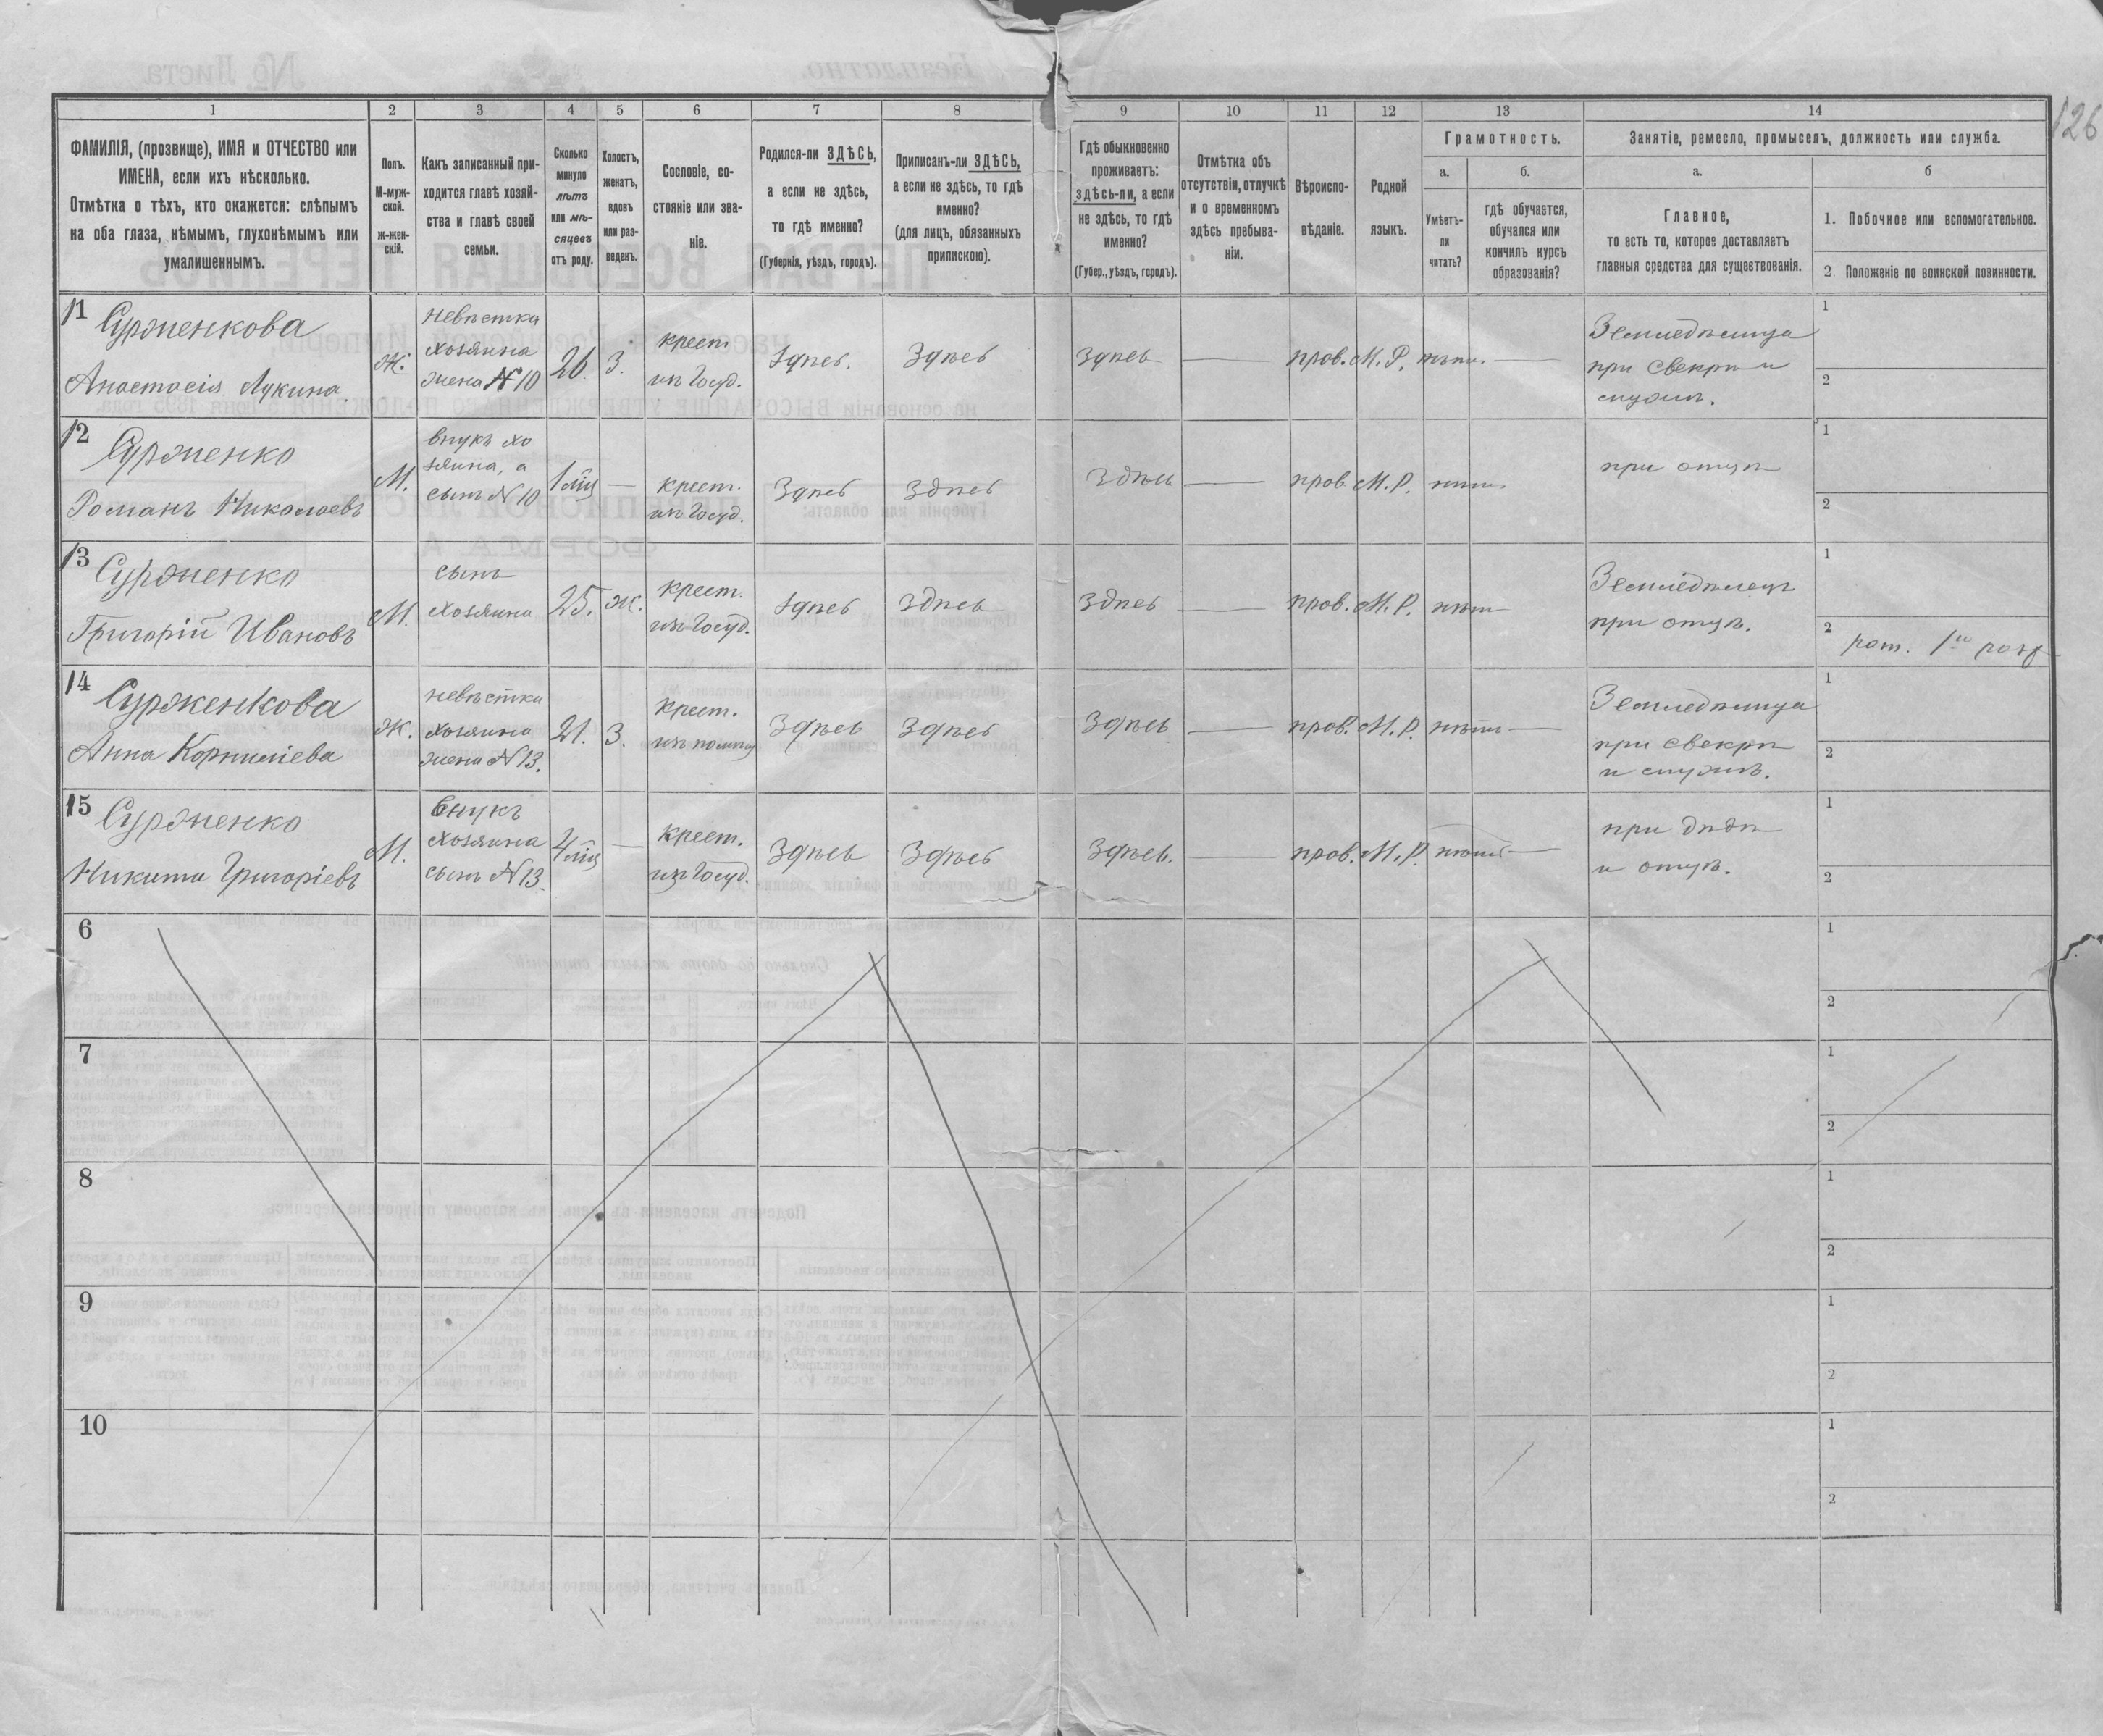 126
1 2 3 4 5 6 7 8 9 10 11 12 13 14
ФАМИЛІЯ, (прозвище), ИМЯ и ОТЧЕСТВО или
ИМЕНА, если ихъ нѣсколько.
Отмѣтка о тѣхъ, кто окажется: слѣпымъ
на оба глаза, нѣмымъ, глухонѣмымъ или
умалишеннымъ.
Полъ.
М-муж-
ской.
ж-жен-
скій.
Какъ записанный при-
ходится главѣ хозяй-
ства и главѣ своей
семьи.
Сколько
минуло
лѣтъ
или мѣ-
сяцевъ
отъ роду.
Холостъ,
женатъ,
вдовъ
или раз-
веденъ.
Сословіе, со-
стояніе или зва-
ніе.
Родился-ли ЗДѢСЬ,
а если не здѣсь,
то гдѣ именно?
(Губернія, уѣздъ, городъ).
Приписанъ-ли ЗДѢСЬ,
а если не здѣсь, то гдѣ
именно?
(для лицъ, обязанныхъ
припискою).
Гдѣ обыкновенно
проживаетъ:
здѣсь-ли, а если
не здѣсь, то гдѣ
именно?
(Губер., уѣздъ, городъ).
Отмѣтка объ
отсутствіи, отлучкѣ
и о временномъ
здѣсь пребыва-
ніи.
Вѣроиспо-
вѣданіе.
Родной
языкъ.
Грамотность.
а.
Умѣетъ-
ли
читать?
б.
гдѣ обучается,
обучался или
кончилъ курсъ
образованія?
Занятіе, ремесло, промыселъ, должность или служба.
а.
Главное,
то есть то, которое доставляетъ
главныя средства для существованія.
б
1. Побочное или вспомогательное.
2 Положеніе по воинской повинности.
11
Сурженкова
Анастасія Лукина.
Ж.
невѣстка
хозяина
жена №10
26.
З.
крест.
изъ Госуд.
Здѣсь.
Здѣсь
Здѣсь
прав.
М. Р.
нѣтъ
Земледѣлица
при свекрѣ и
мужѣ.
1
2
12
Сурженко
Романъ Николаевъ
М.
внукъ хо
зяина, а
сынъ №10
1 мѣс
крест.
изъ Госуд.
Здѣсь
Здѣсь
Здѣсь
прав.
М. Р.
нѣтъ
при отцѣ
1
2
13
Сурженко
Григорій Ивановъ
М.
сынъ
хозяина
25.
Ж.
крест.
изъ Госуд.
Здѣсь
Здѣсь
Здѣсь
прав.
М. Р.
нѣтъ
Земледѣлецъ
при отцѣ.
1
2 рат. 1го разр
14
Сурженкова
Анна Корниліева
Ж.
невѣстка
хозяина
жена №13.
21.
З.
крест.
изъ помѣщ
Здѣсь
Здѣсь
Здѣсь
прав.
М. Р.
нѣтъ
Земледѣлица
при свекрѣ
и мужѣ.
1
2
15
Сурженко
Никита Григоріевъ
М.
внукъ
хозяина
сынъ №13.
4 мѣс
крест.
изъ Госуд.
Здѣсь
Здѣсь
Здѣсь.
прав.
М. Р.
нѣтъ
при дѣдѣ
и отцѣ.
1
2
6
1
2
7
1
2
8
1
2
9
1
2
10
1
2